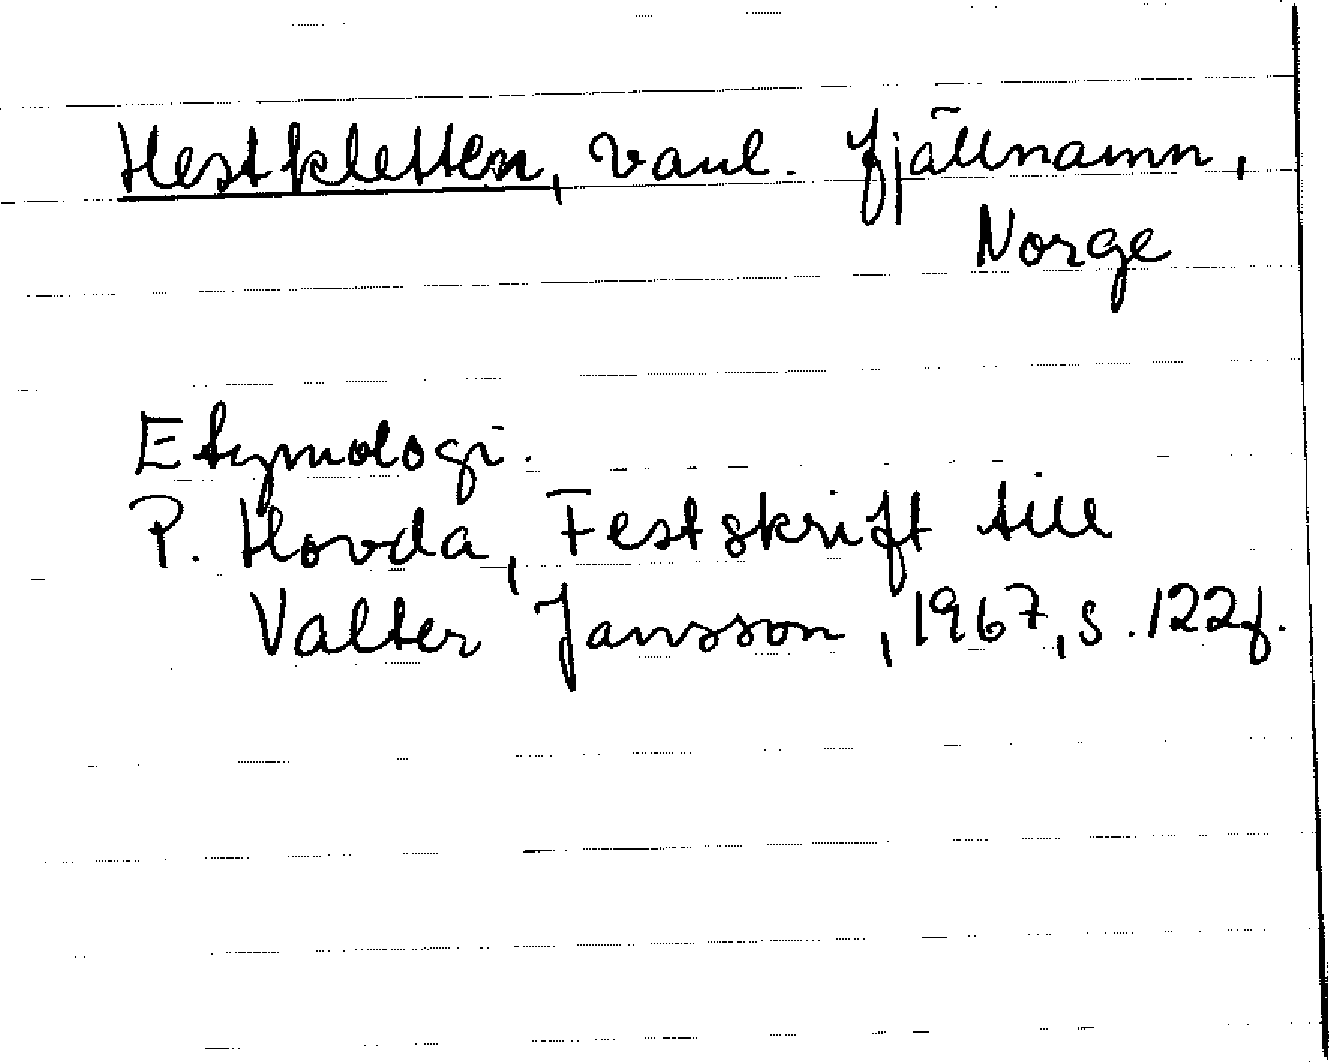 Hestkletten, vanl. fjällnamn,
Norge
Etymologi.
P. Hovda, Festskrift till
Valter Jansson, 1967, s. 122f.